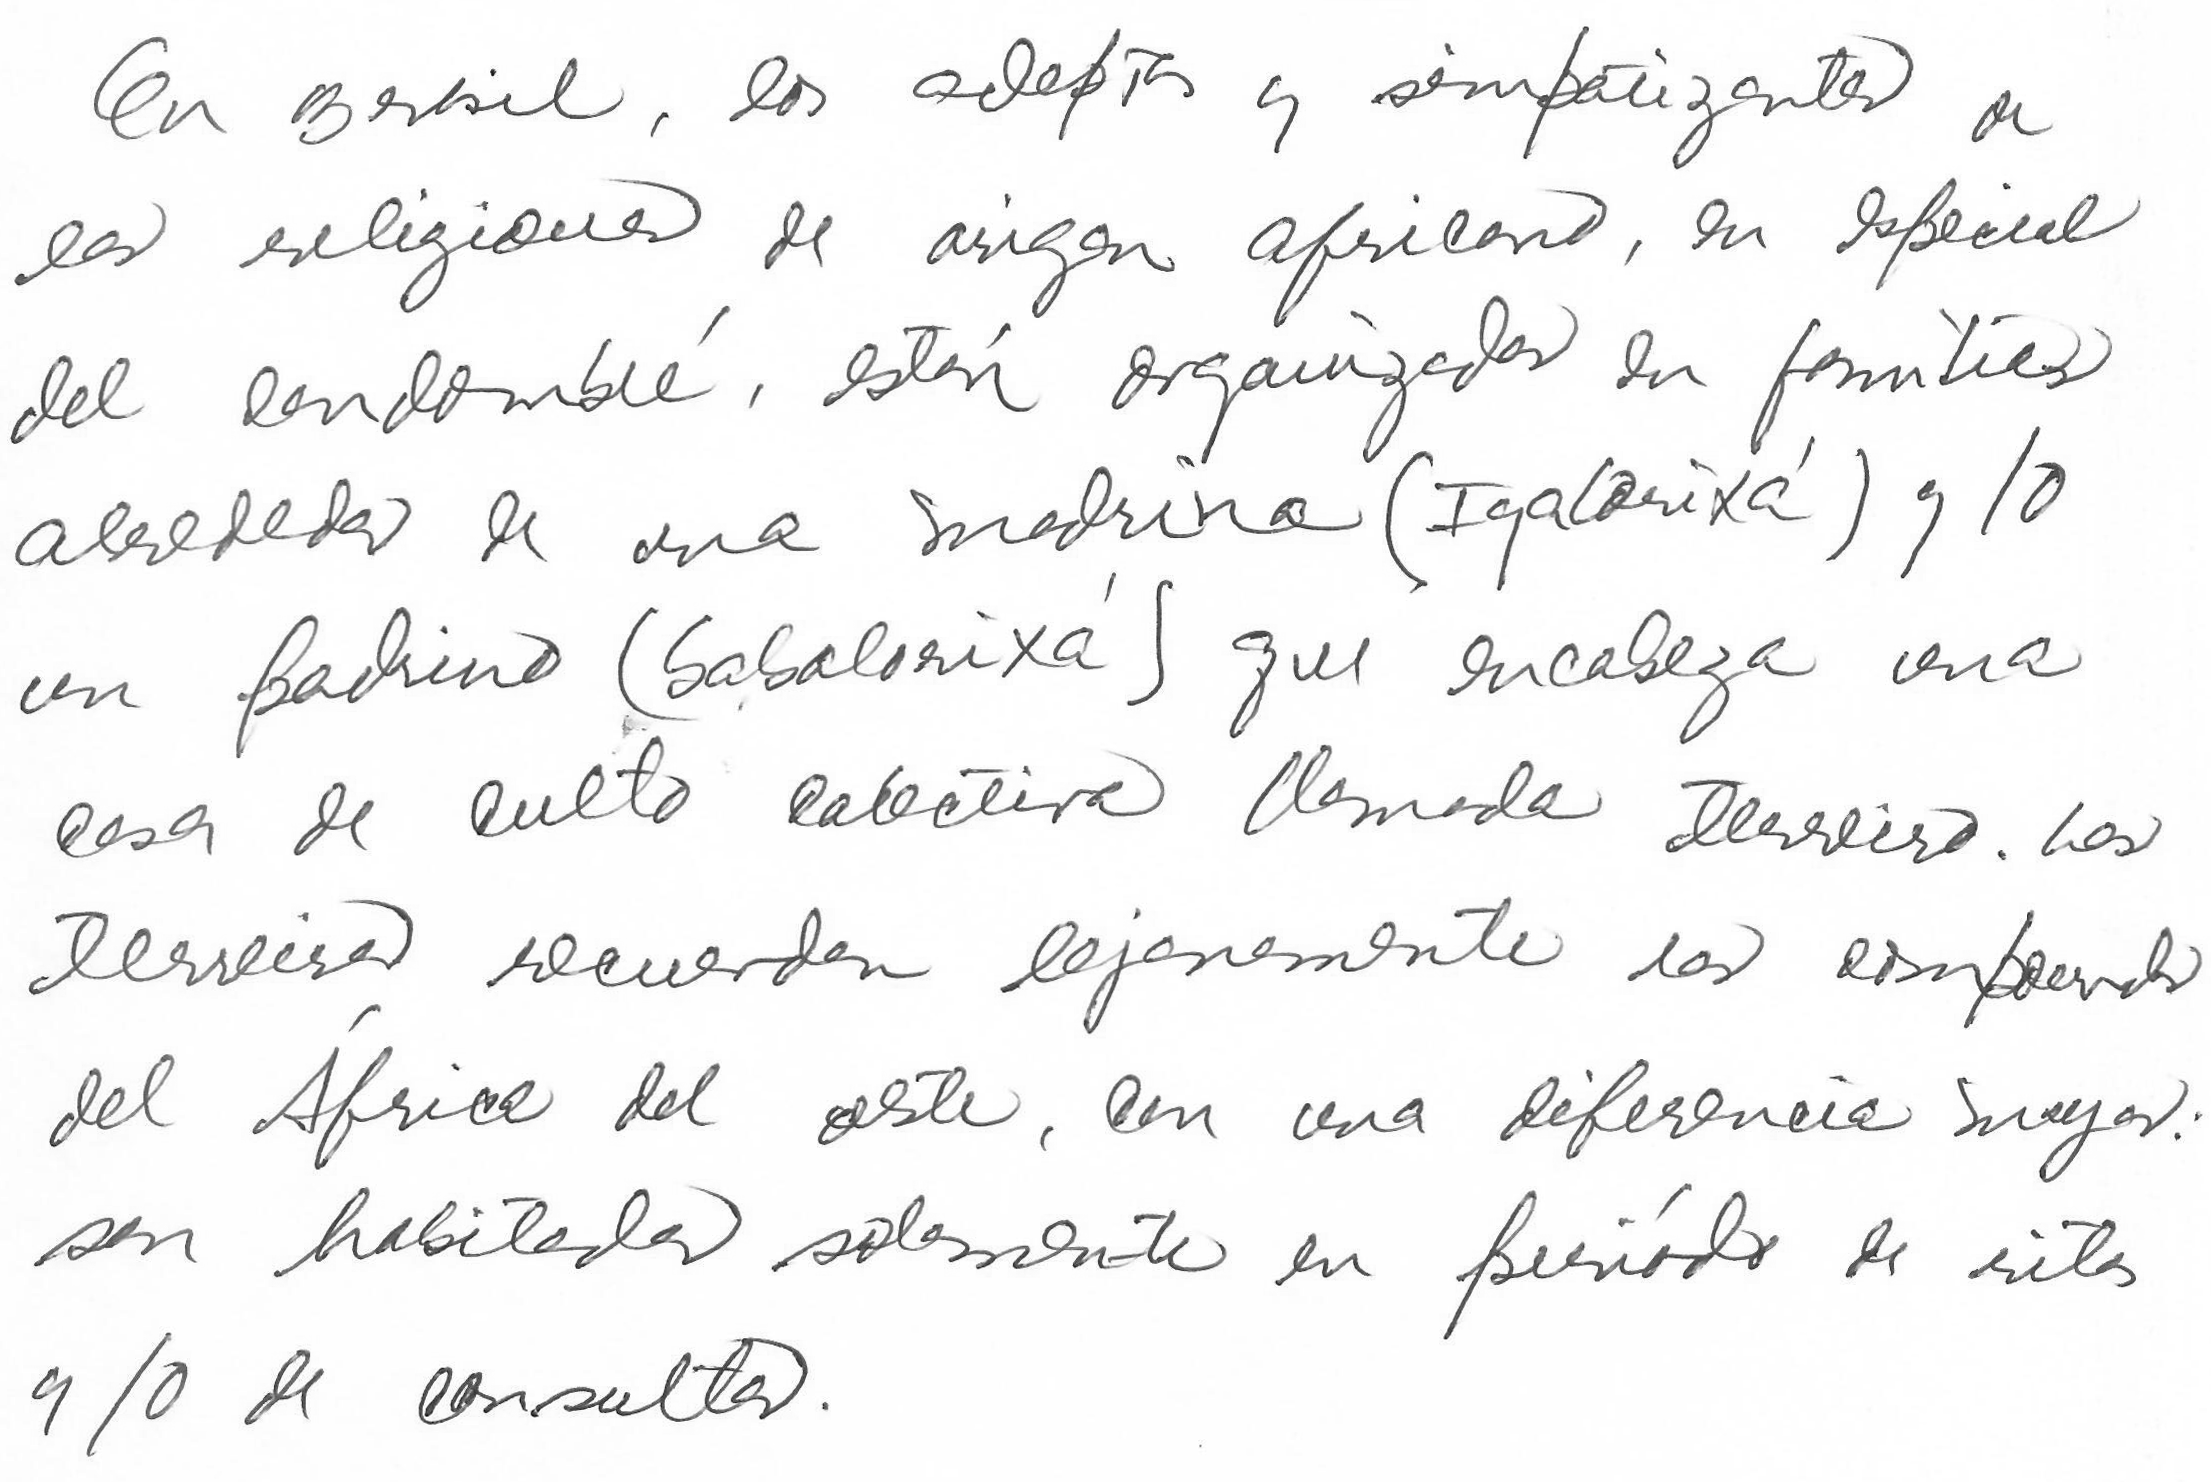 En Brasil, los adeptos y simpatizantes de
las religiones de origen africano, en especial
del candomblé, están organizados en familias
alrededor de una madrina (Iyalorixá) y/o
un padrino (babalorixá) que encabeza una
casa de culto colectiva llamada Terreiro. Los
Terreiros recuerdan lejanamente los compounds
del África del oeste, con una diferencia mayor:
son habitados solamente en período de ritos
y/o de consultas.